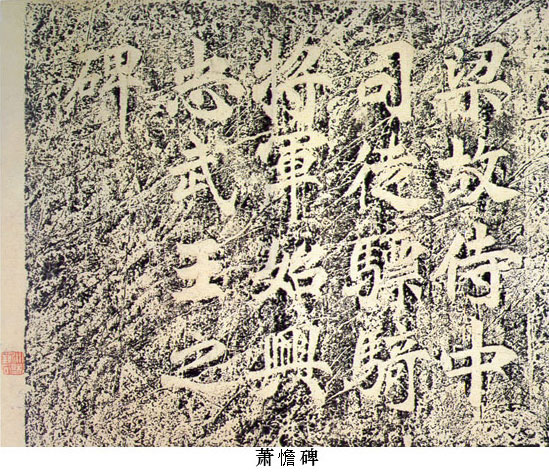 梁故侍中
司徒驃騎
將軍始興
忠武王之
碑
萧憺碑